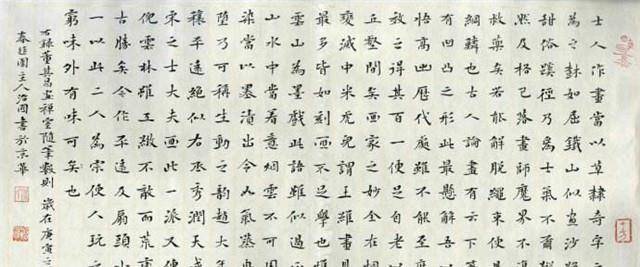 士人作畫當以草隸奇字
為之樹如屈鐵山似畫沙
甜俗蹊徑乃為士氣不爾
然及格已落畫師魔界不復
救藥矣若能解脫繩束便是
網鱗也古人論畫有云下
有凹凸之形此最懸解吾
悟高出歷代處雖不能至
放之得其百一便足自老以
丘壑間矣畫家之妙全在烟
變滅中米虎兒謂王維畫見
最多皆如刻畫不足學也
雲山為墨戲此語雖似過正
山水中當着意烟雲不可用
染當以墨漬出令如氣蒸冉
墮乃可稱生動之韻趙大年
穰平遠絕似右丞秀潤天成
宋之士大夫畫此一派又傳
倪雲林雖工緻不敢而荒率
古勝矣今作平遠及扇頭小
一以此二人為宗使人玩之
窮味外有味可矣也
右錄董其昌畫禪室隨筆數則 歲在庚寅之
園主人治園書於京華